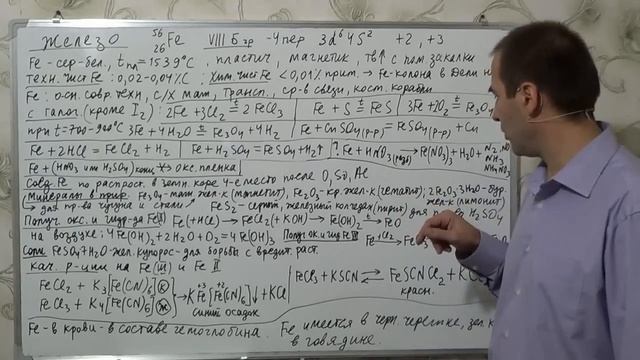 железо ⁵⁶₂₆Fe VIII Б гр 4 пер 3d⁶4S² +2, +3
Fe - сер-бел., tпл = 1539°C, пластич, магнетик, тв↑ с пом закалки
Техн. чист Fe: 0,02-0,04% C; Хим. чист Fe < 0,01% прим. → Fe-колона в Дели
Fe: осн. совр. техн, с/х маш, трансп., ср-в связи, косм. корабли
с галог. (кроме I₂): 2Fe + 3Cl₂ =t 2FeCl₃ Fe + S =t FeS 3Fe + 2O₂ =t Fe₃O₄
при t=700-900°C 3Fe + 4H₂O ⇄ Fe₃O₄ + 4H₂ Fe + CuSO₄(р-р) = FeSO₄(р-р) + Cu
Fe + 2HCl = FeCl₂ + H₂ Fe + H₂SO₄ = FeSO₄ + H₂↑ Fe + H → Fe(NO₃)₃ + H₂O +
Fe + (HNO₃ или H₂SO₄) конц ↛ окс. пленка
Соед Fe по распрост. в земн. коре 4-е место после O, Si, Al
Минералы в прир. Fe₃O₄ - магн. жел-к (магнетит), Fe₂O₃ - кр. жел-к (гематит); 2Fe₂O₃·3H₂O - бур. жел-к (лимонит)
→ для пр-ва чугуна и стали FeS₂ - серный, железный колчедан (пирит) для H₂SO₄
Получ. окс. и гидр-да Fe II Fe (+HCl) → FeCl₂ (+KOH) → Fe(OH)₂ →t FeO
на воздухе: 4Fe(OH)₂ + 2H₂O + O₂ = 4Fe(OH)₃ Получ ок. и гид Fe III Fe +Cl₂→ Fe
Соли FeSO₄·7H₂O - жел. купорос - для борьбы с вредит. раст.
кач. р-ции на Fe III и Fe II
FeCl₂ + K₃[Fe(CN)₆] к
FeCl₃ + K₄[Fe(CN)₆] ж
→ K Fe⁺³[Fe⁺²(CN)₆]↓ + KCl
синий осадок
FeCl₃ + KSCN ⇄ FeSCNCl₂ + KCl
красн.
Fe - в крови - в составе гемоглобина. Fe имеется в черн.
в говядине.